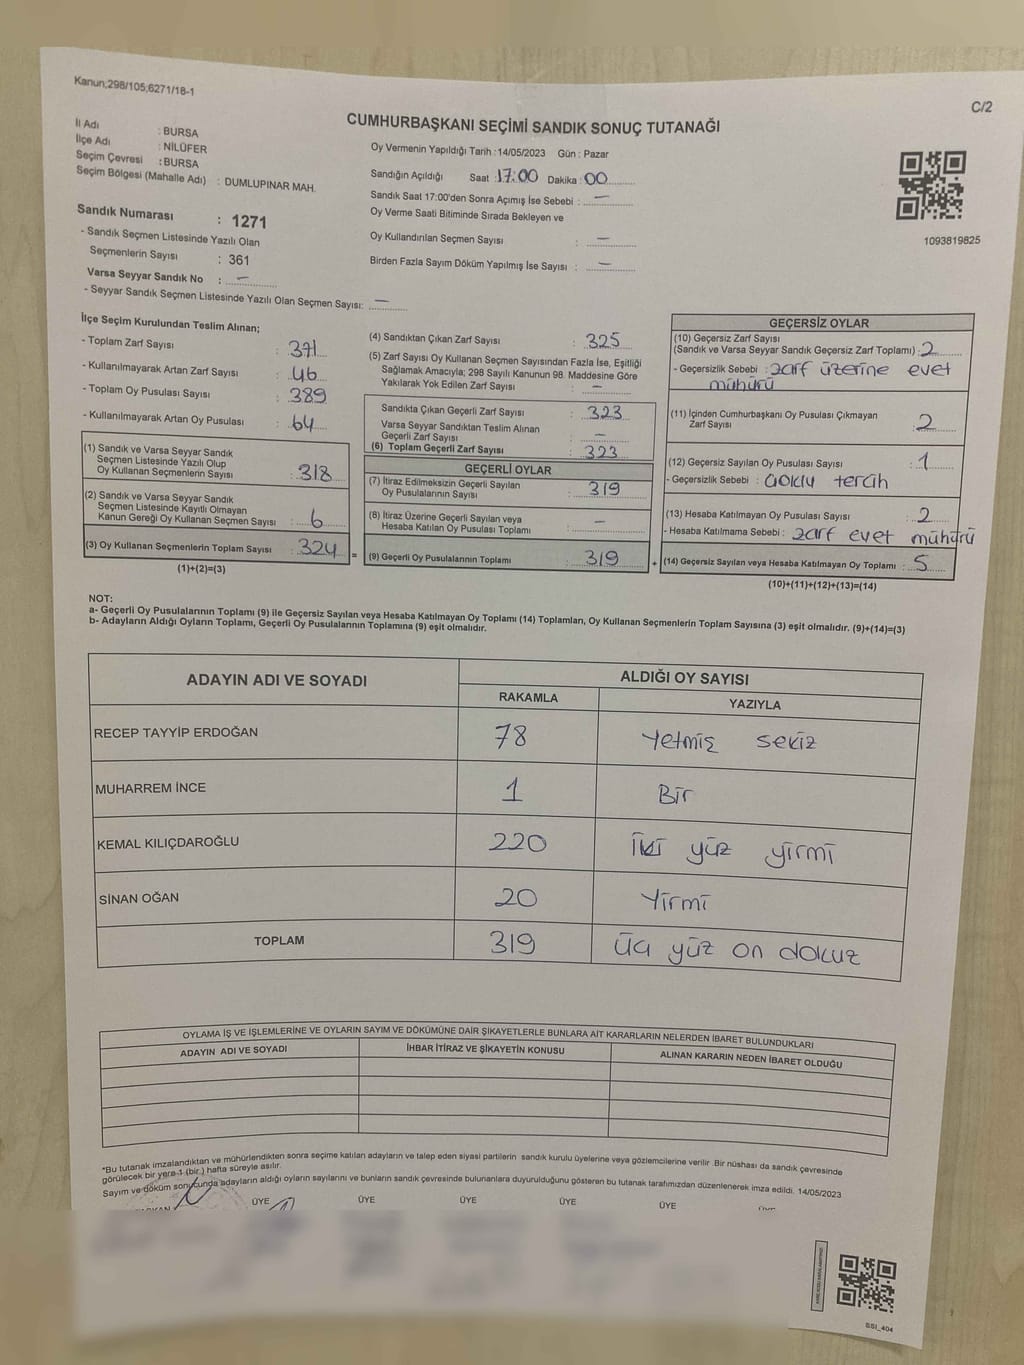 Kanun;298/105;6271/18-1
C/2
CUMHURBAŞKANI SEÇİMİ SANDIK SONUÇ TUTANAĞI
İl Adı : BURSA
İlçe Adı : NİLÜFER
Seçim Çevresi : BURSA
Seçim Bölgesi (Mahalle Adı) : DUMLUPINAR MAH.
Sandık Numarası : 1271
- Sandık Seçmen Listesinde Yazılı Olan
Seçmenlerin Sayısı : 361
Varsa Seyyar Sandık No : —
- Seyyar Sandık Seçmen Listesinde Yazılı Olan Seçmen Sayısı: —
Oy Vermenin Yapıldığı Tarih : 14/05/2023 Gün : Pazar
Sandığın Açıldığı Saat : 17:00 Dakika : 00
Sandık Saat 17:00'den Sonra Açımış İse Sebebi : —
Oy Verme Saati Bitiminde Sırada Bekleyen ve
Oy Kullandırılan Seçmen Sayısı : —
Birden Fazla Sayım Döküm Yapılmış İse Sayısı : —
1093819825
İlçe Seçim Kurulundan Teslim Alınan;
- Toplam Zarf Sayısı : 371
- Kullanılmayarak Artan Zarf Sayısı : 46
- Toplam Oy Pusulası Sayısı : 389
- Kullanılmayarak Artan Oy Pusulası : 64
(1) Sandık ve Varsa Seyyar Sandık
Seçmen Listesinde Yazılı Olup
Oy Kullanan Seçmenlerin Sayısı : 318
(2) Sandık ve Varsa Seyyar Sandık
Seçmen Listesinde Kayıtlı Olmayan
Kanun Gereği Oy Kullanan Seçmen Sayısı : 6
(3) Oy Kullanan Seçmenlerin Toplam Sayısı : 324
(1)+(2)=(3)
(4) Sandıktan Çıkan Zarf Sayısı : 325
(5) Zarf Sayısı Oy Kullanan Seçmen Sayısından Fazla İse, Eşitliği
Sağlamak Amacıyla; 298 Sayılı Kanunun 98. Maddesine Göre
Yakılarak Yok Edilen Zarf Sayısı : —
Sandıkta Çıkan Geçerli Zarf Sayısı : 323
Varsa Seyyar Sandıktan Teslim Alınan
Geçerli Zarf Sayısı : —
(6) Toplam Geçerli Zarf Sayısı : 323
GEÇERLİ OYLAR
(7) İtiraz Edilmeksizin Geçerli Sayılan
Oy Pusulalarının Sayısı : 319
(8) İtiraz Üzerine Geçerli Sayılan veya
Hesaba Katılan Oy Pusulaları Toplamı : —
= (9) Geçerli Oy Pusulalarının Toplamı : 319
GEÇERSİZ OYLAR
(10) Geçersiz Zarf Sayısı
(Sandık ve Varsa Seyyar Sandık Geçersiz Zarf Toplamı) : 2
- Geçersizlik Sebebi : zarf üzerine evet
mühürü
(11) İçinden Cumhurbaşkanı Oy Pusulası Çıkmayan
Zarf Sayısı : 2
(12) Geçersiz Sayılan Oy Pusulası Sayısı : 1
- Geçersizlik Sebebi : çoklu tercih
(13) Hesaba Katılmayan Oy Pusulası Sayısı : 2
- Hesaba Katılmama Sebebi : zarf evet mühürü
+ (14) Geçersiz Sayılan veya Hesaba Katılmayan Oy Toplamı : 5
(10)+(11)+(12)+(13)=(14)
NOT:
a- Geçerli Oy Pusulalarının Toplamı (9) ile Geçersiz Sayılan veya Hesaba Katılmayan Oy Toplamı (14) Toplamları, Oy Kullanan Seçmenlerin Toplam Sayısına (3) eşit olmalıdır. (9)+(14)=(3)
b- Adayların Aldığı Oyların Toplamı, Geçerli Oy Pusulalarının Toplamına (9) eşit olmalıdır.
ADAYIN ADI VE SOYADI
ALDIĞI OY SAYISI
RAKAMLA YAZIYLA
RECEP TAYYİP ERDOĞAN 78 Yetmiş sekiz
MUHARREM İNCE 1 Bir
KEMAL KILIÇDAROĞLU 220 İki yüz yirmi
SİNAN OĞAN 20 Yirmi
TOPLAM 319 üç yüz on dokuz
OYLAMA İŞ VE İŞLEMLERİNE VE OYLARIN SAYIM VE DÖKÜMÜNE DAİR ŞİKAYETLERLE BUNLARA AİT KARARLARIN NELERDEN İBARET BULUNDUKLARI
ADAYIN ADI VE SOYADI İHBAR İTİRAZ VE ŞİKAYETİN KONUSU ALINAN KARARIN NEDEN İBARET OLDUĞU
*Bu tutanak imzalandıktan ve mühürlendikten sonra seçime katılan adayların ve talep eden siyasi partilerin sandık kurulu üyelerine veya gözlemcilerine verilir. Bir nüshası da sandık çevresinde
görülecek bir yere 1 (bir.) hafta süreyle asılır.
Sayım ve döküm sonucunda adayların aldığı oyların sayılarını ve bunların sandık çevresinde bulunanlara duyurulduğunu gösteren bu tutanak tarafımızdan düzenlenerek imza edildi. 14/05/2023
ÜYE ÜYE ÜYE ÜYE ÜYE
SSI_404